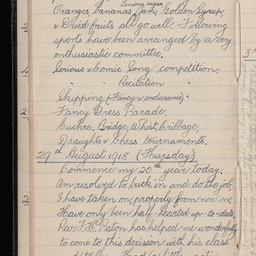 Lemons, sugar
Oranges, Bananas, Jam, Golden Syrup,
& Dried fruits all go well. Following
sports have been arranged by a very
enthusiastic committee.
Serious & Comic Song competition.
" " Recitation "
Skipping (Fancy & endurance).
Fancy Dress Parade.
Euchre, Bridge, Whist, Cribbage,
Draughts & Chess tournaments.
29th August 1918 (Thursday)
Commence my 20th year today.
Am resolved to buck in and do the job,
I have taken on, properly from now on.
Have only been half-hearted up-to-date,
Rev. F. H. Paton has helped me wonderfully
to come to this decision with his class